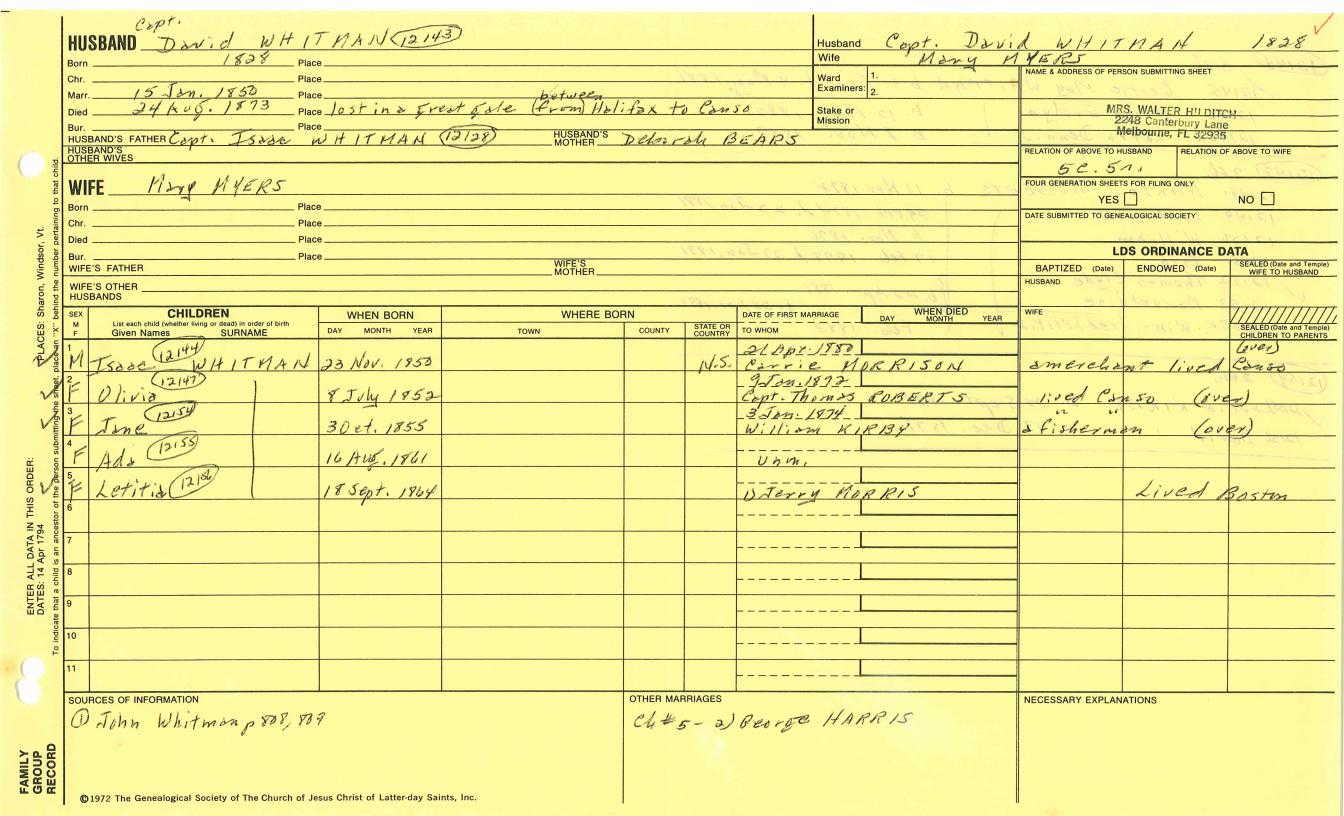 Capt.
HUSBAND David WHITMAN 12143
Born 1828 Place
Chr. Place
Marr. 15 Jan. 1850 Place
between
Died 24 Aug. 1873 Place lost in a great gale (from) Halifax to Canso
Bur. Place
HUSBAND'S FATHER Capt. Isaac WHITMAN 12128 HUSBAND'S MOTHER Deborah BEARS
HUSBAND'S OTHER WIVES
Husband Capt. David WHITMAN 1828
Wife Mary MYERS
Ward Examiners: 1.
2.
Stake or Mission
NAME & ADDRESS OF PERSON SUBMITTING SHEET
MRS. WALTER HILDITCH
2248 Canterbury Lane
Melbourne, FL 32935
RELATION OF ABOVE TO HUSBAND RELATION OF ABOVE TO WIFE
5c. 5r.
FOUR GENERATION SHEETS FOR FILING ONLY
YES NO
DATE SUBMITTED TO GENEALOGICAL SOCIETY
WIFE Mary MYERS
Born Place
Chr. Place
Died Place
Bur. Place
WIFE'S FATHER WIFE'S MOTHER
WIFE'S OTHER HUSBANDS
LDS ORDINANCE DATA
BAPTIZED (Date) ENDOWED (Date) SEALED (Date and Temple) WIFE TO HUSBAND
HUSBAND
WIFE
SEALED (Date and Temple) CHILDREN TO PARENTS
SEX M F CHILDREN WHEN BORN WHERE BORN DATE OF FIRST MARRIAGE WHEN DIED
List each child (whether living or dead) in order of birth
Given Names SURNAME DAY MONTH YEAR TOWN COUNTY STATE OR COUNTRY TO WHOM DAY MONTH YEAR
1 12144 21 Apr. 1880 (over)
M Isaac WHITMAN 23 Nov. 1850 N.S. Carrie MORRISON a merchant lived Canso
2 12147 9 Jan. 1872
F Olivia 8 July 1852 Capt. Thomas ROBERTS lived Canso (over)
3 12154 3 Jan. 1874 " "
F Jane 3 Oct. 1855 William KIRBY a fisherman (over)
4 12155
F Ada 16 Aug. 1861 Unm.
5 12156
F Letitia 18 Sept. 1864 1) Jerry MORRIS Lived Boston
6
7
8
9
10
11
SOURCES OF INFORMATION
① John Whitman p 808, 809
OTHER MARRIAGES
Ch #5 - 2) George HARRIS
NECESSARY EXPLANATIONS
©1972 The Genealogical Society of The Church of Jesus Christ of Latter-day Saints, Inc.
FAMILY GROUP RECORD
ENTER ALL DATA IN THIS ORDER:
DATES: 14 Apr 1794 PLACES: Sharon, Windsor, Vt.
To indicate that a child is an ancestor of the person submitting the sheet, place an "X" behind the number pertaining to that child.